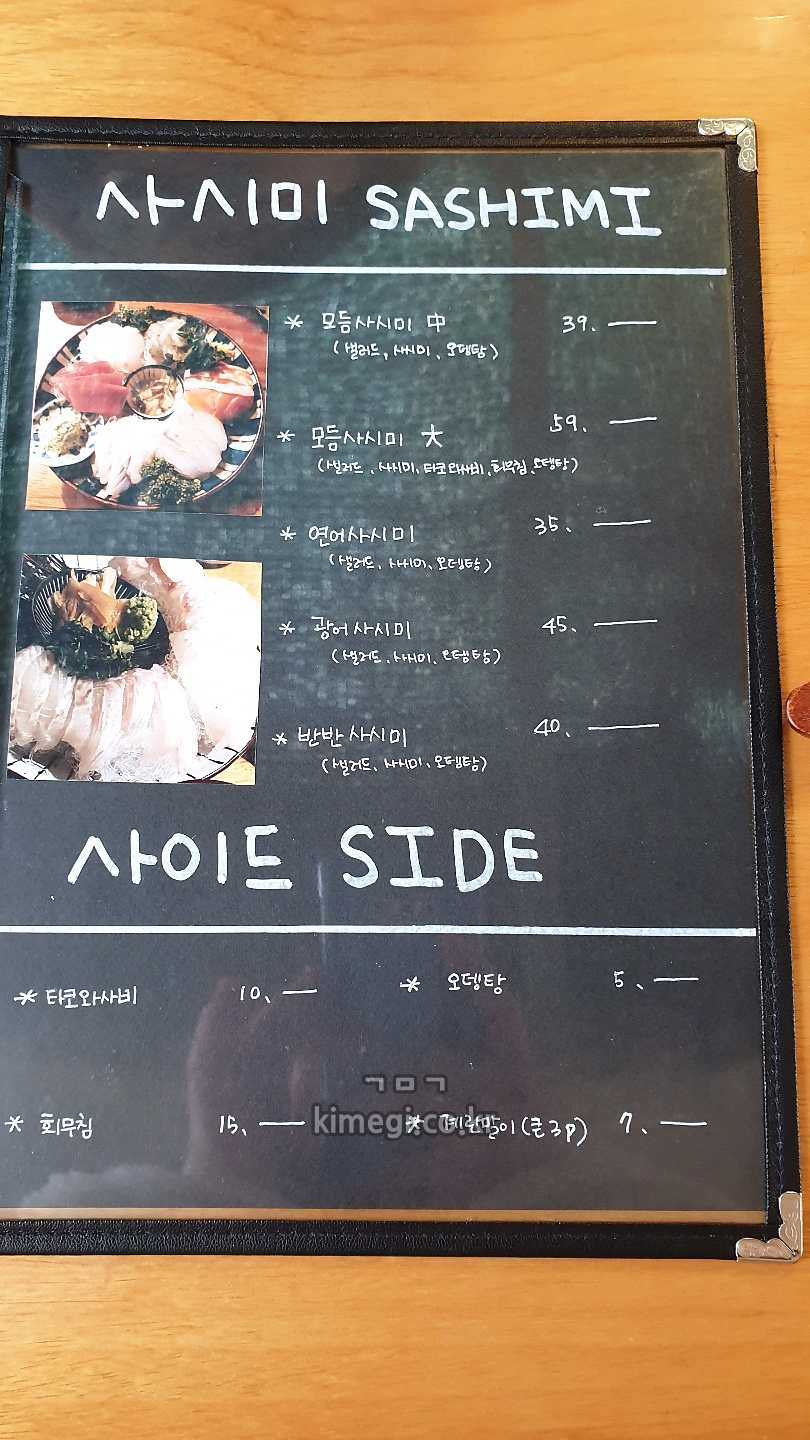 사시미 SASHIMI
* 모듬사시미 中 39. —
(샐러드, 사시미, 오뎅탕)
* 모듬사시미 大 59. —
(샐러드, 사시미, 타코와사비, 회무침, 오뎅탕)
* 연어사시미 35. —
(샐러드, 사시미, 오뎅탕)
* 광어사시미 45. —
(샐러드, 사시미, 오뎅탕)
* 반반사시미 40. —
(샐러드, 사시미, 오뎅탕)
사이드 SIDE
* 타코와사비 10. — * 오뎅탕 5. —
ㄱㅁㄱ
kimegi.co.kr
* 회무침 15. — * 계란말이(큰3p) 7. —